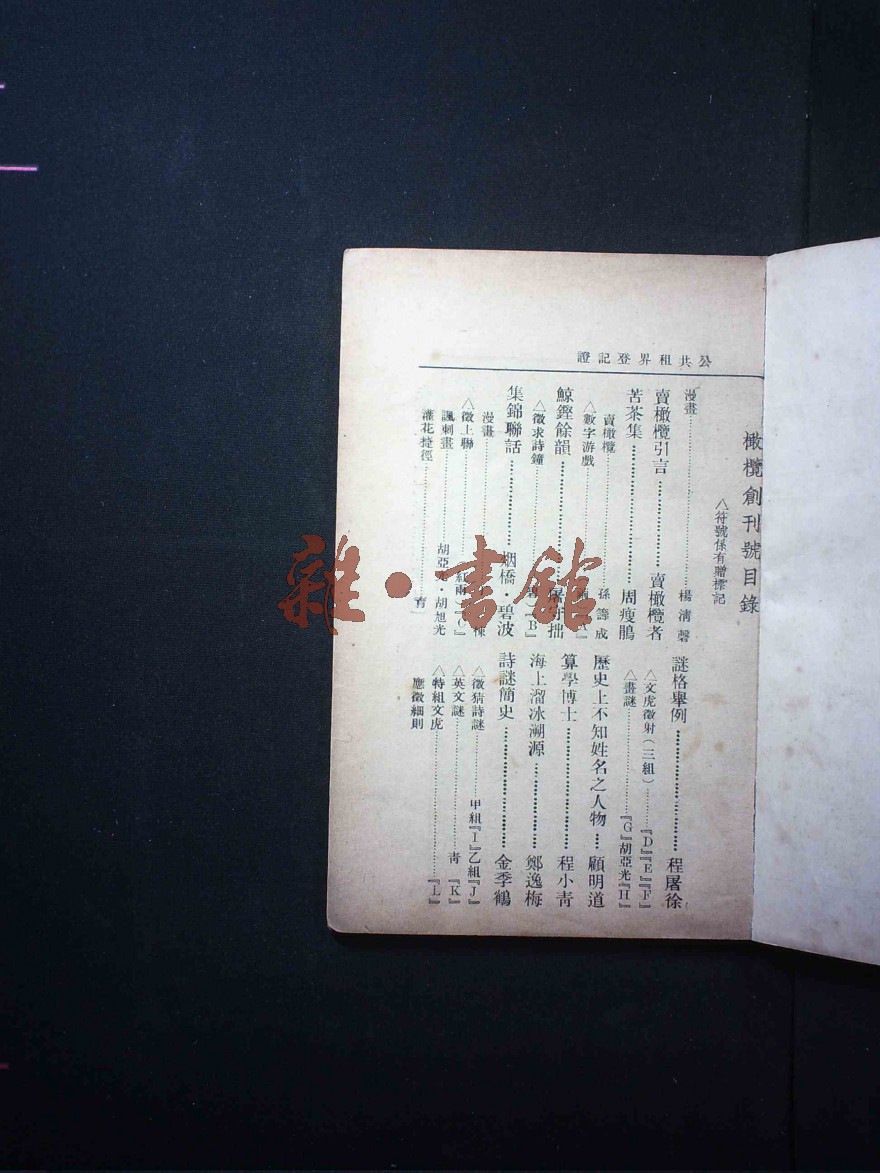 公共租界登記證
橄欖創刊號目錄
△符號係有贈標記
漫畫……楊清磬
賣橄欖引言……賣橄欖者
苦茶集……周瘦鵑
賣橄欖……孫籌成
△數字游戲……『A』
鯨鏗餘韻……屠守拙
△徵求詩鐘……『B』
集錦聯話……烟橋·碧波
漫畫……棟
△徵上聯……紅雨『C』
諷刺畫……胡亞光·胡旭光
護花捷徑……育
謎格舉例……程屠徐
△文虎徵射(三組)……『D』『E』『F』
△畫謎……『G』胡亞光『H』
歷史上不知姓名之人物……顧明道
算學博士……程小青
海上溜冰溯源……鄭逸梅
詩謎簡史……金季鶴
△徵猜詩謎……甲組『I』乙組『J』
△英文謎……青『K』
△特組文虎……『L』
應徵細則
雜·書館